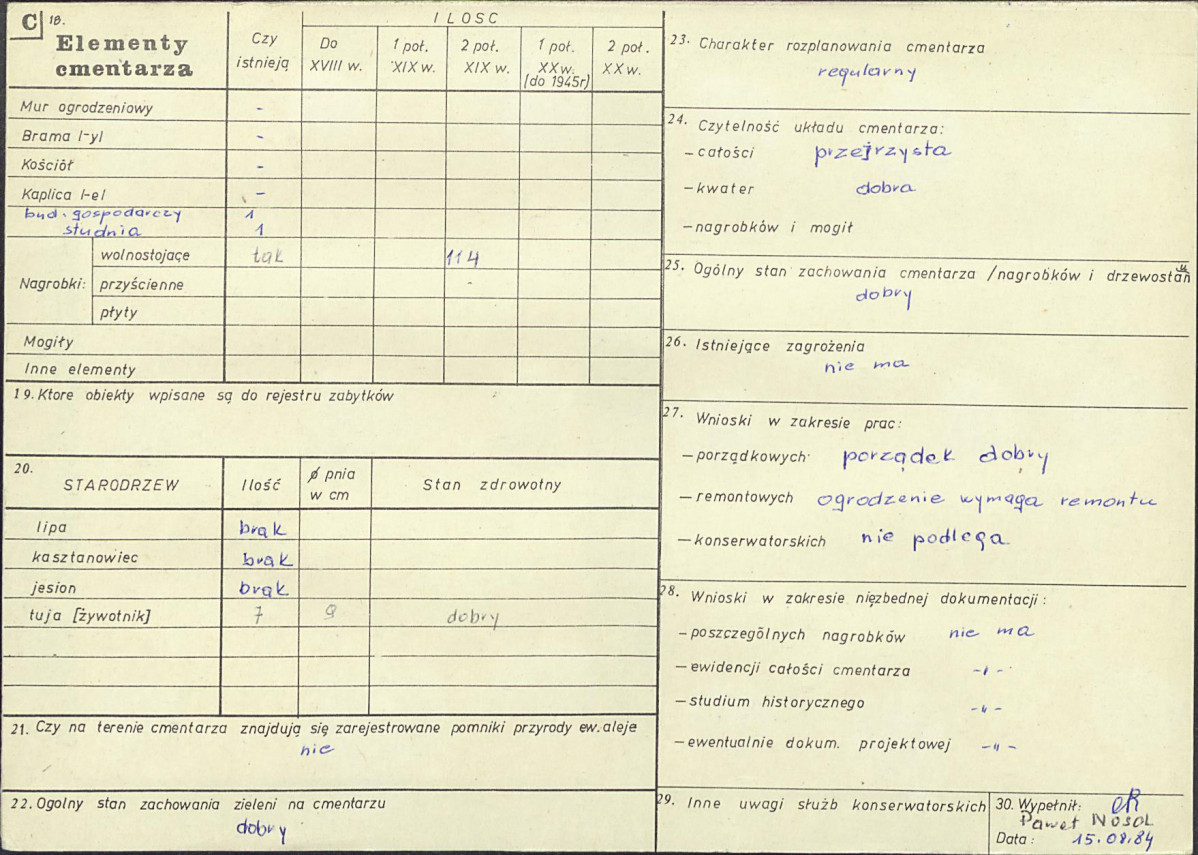 C 18.
Elementy
cmentarza
Czy
istnieją
ILOSC
Do
XVIII w.
1 poł.
XIX w.
2 poł.
XIX w.
1 poł.
XX w.
[do 1945r]
2 poł.
XX w.
Mur ogrodzeniowy -
Brama /-y/ -
Kościół -
Kaplica /-e/ -
bud. gospodarczy 1
studnia 1
Nagrobki: wolnostojące tak 114
przyścienne -
płyty
Mogiły
Inne elementy
19. Ktore obiekty wpisane są do rejestru zabytków
20.
STARODRZEW Ilość ø pnia
w cm Stan zdrowotny
lipa brak
kasztanowiec brak
jesion brak
tuja [żywotnik] 7 9 dobry
21. Czy na terenie cmentarza znajdują się zarejestrowane pomniki przyrody ew. aleje
nie
22. Ogolny stan zachowania zieleni na cmentarzu
dobry
23. Charakter rozplanowania cmentarza
regularny
24. Czytelność układu cmentarza:
- całości przejrzysta
- kwater dobra
- nagrobków i mogił
25. Ogólny stan zachowania cmentarza /nagrobków i drzewostan
dobry
26. Istniejące zagrożenia
nie ma
27. Wnioski w zakresie prac:
- porządkowych porządek dobry
- remontowych ogrodzenie wymaga remontu
- konserwatorskich nie podlega
28. Wnioski w zakresie nięzbednej dokumentacji:
- poszczególnych nagrobków nie ma
- ewidencji całości cmentarza -"-
- studium historycznego -"-
- ewentualnie dokum. projektowej -"-
29. Inne uwagi służb konserwatorskich
30. Wypełnił:
Paweł NOSOL
Data: 15.08.84